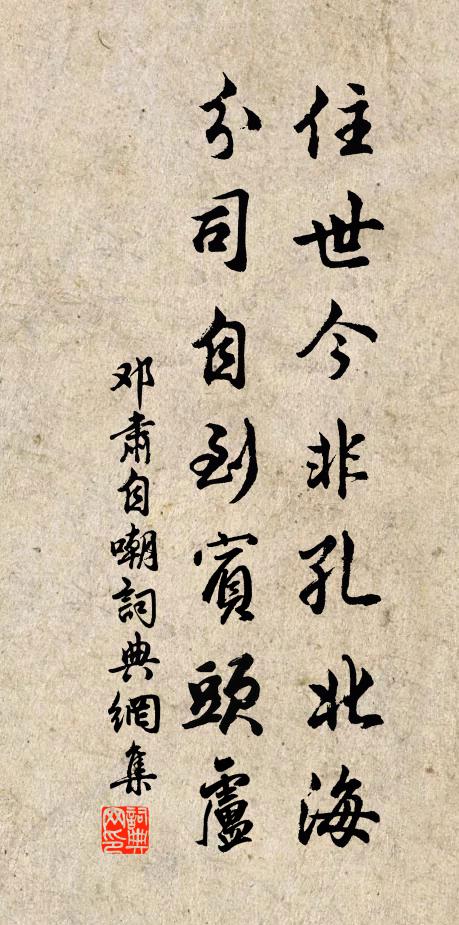 住世今非孔北海
分司自到賓頭盧
邓肅自嘲詞典網集
詞典网印